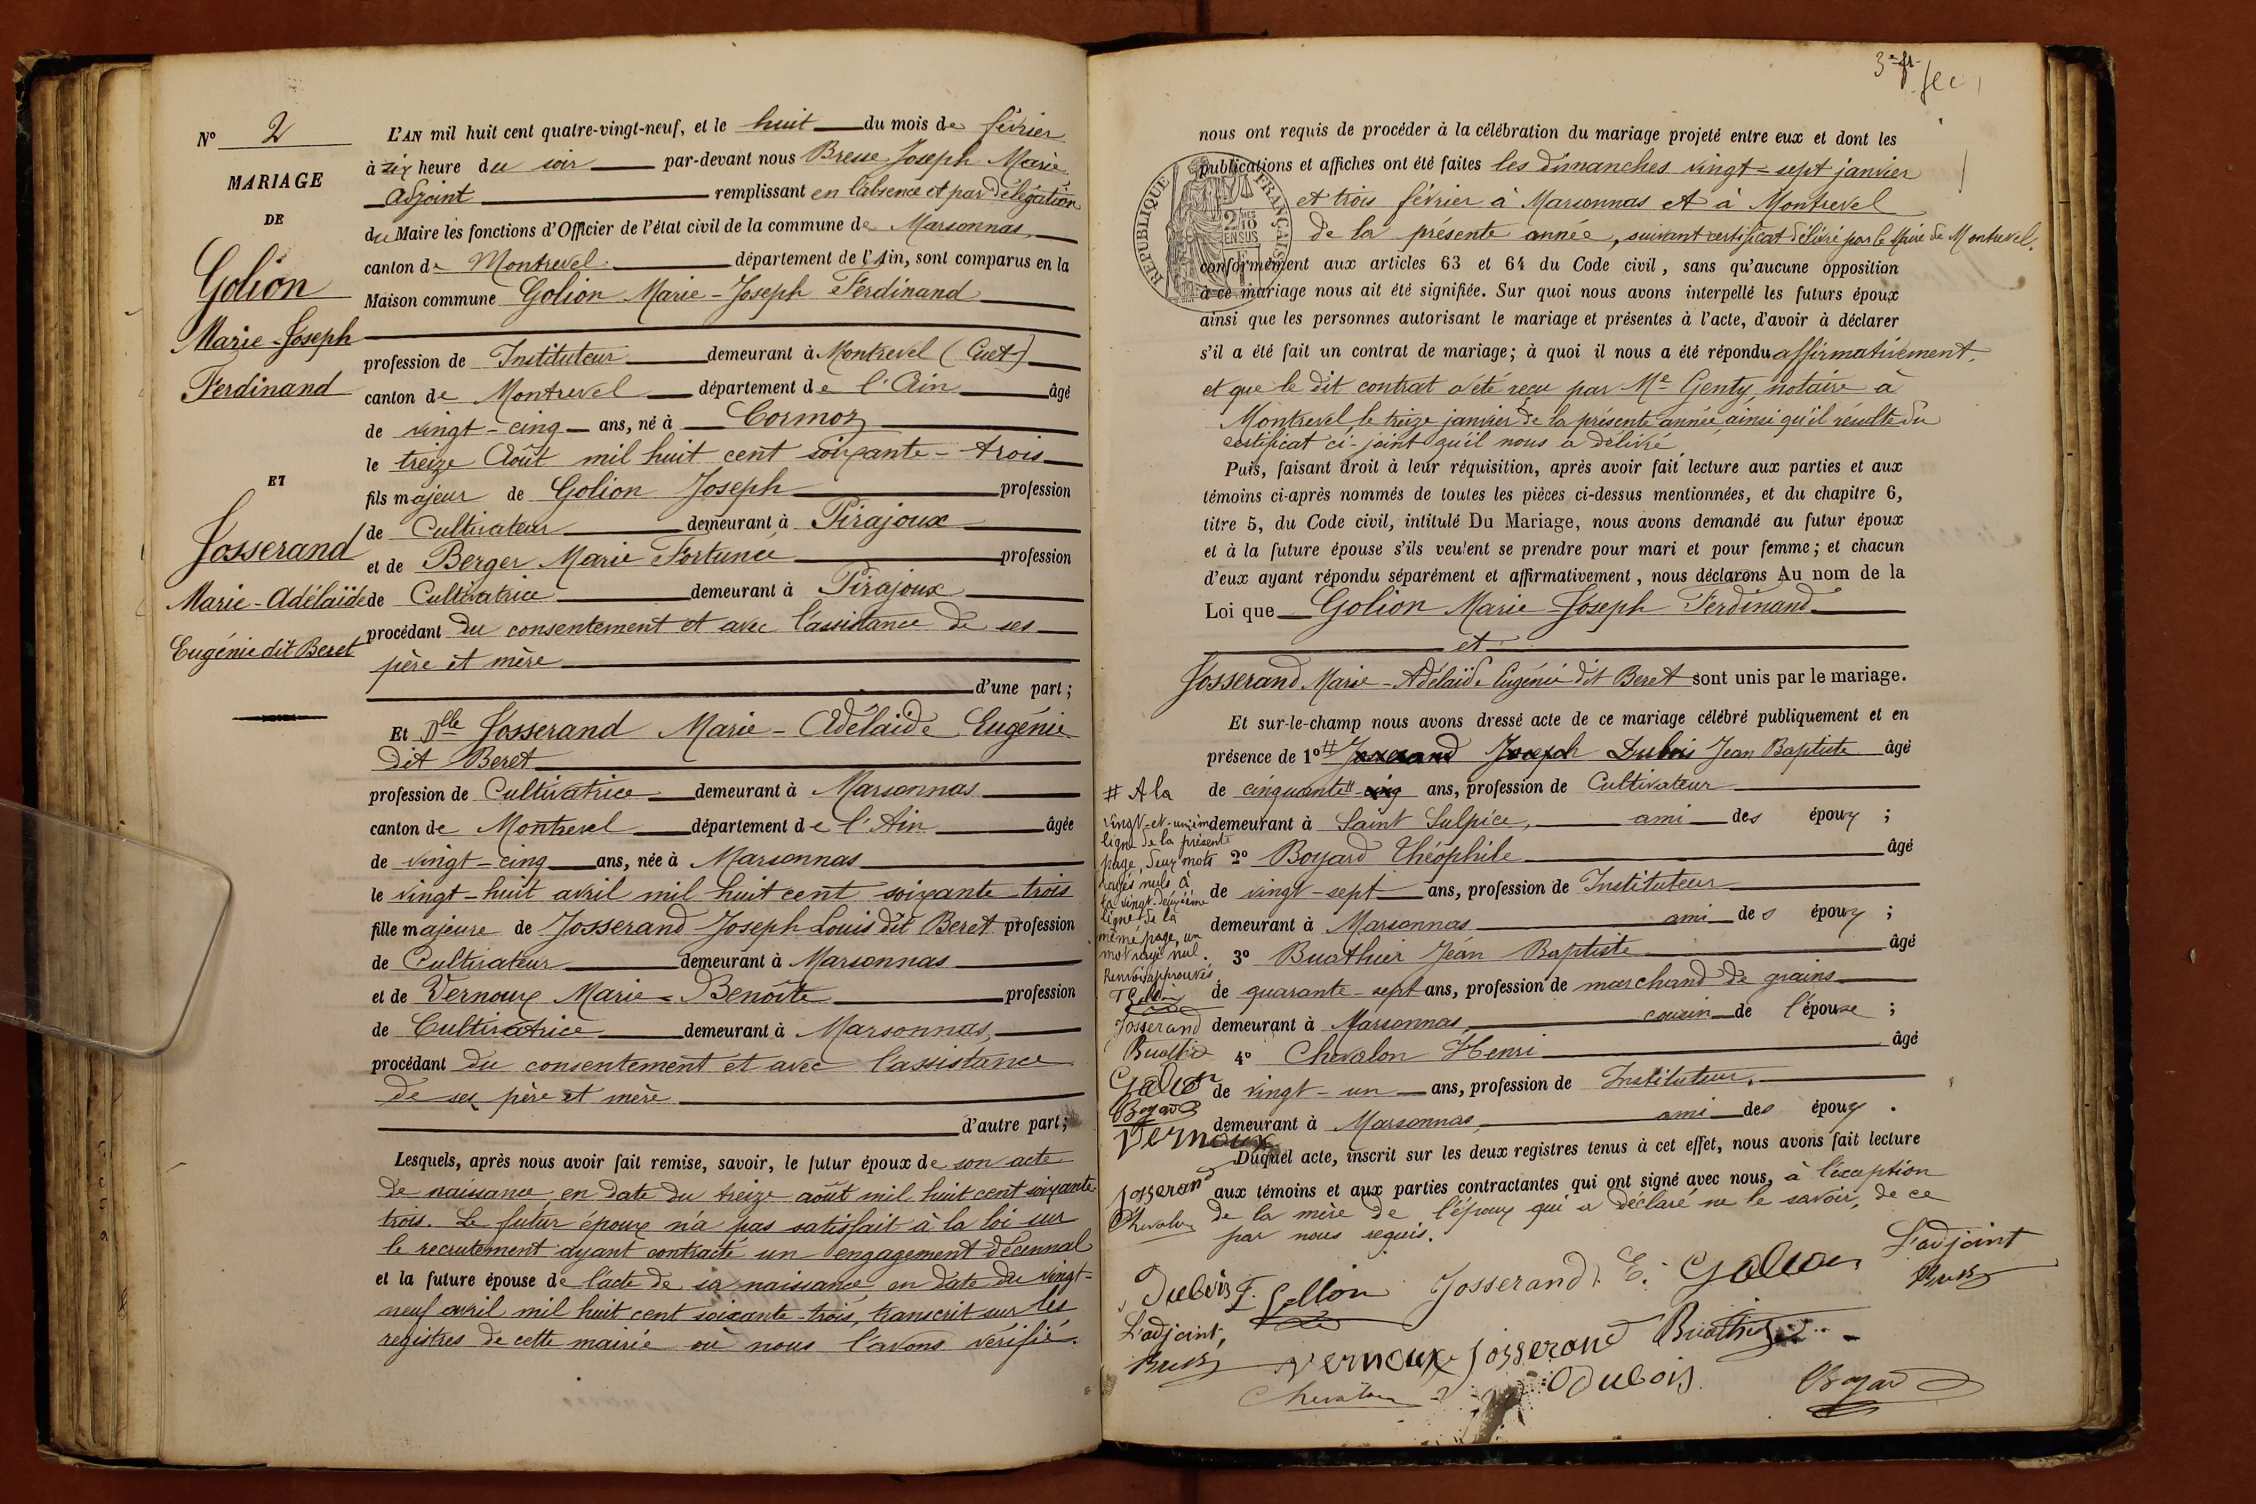 N° 2
MARIAGE
DE
Golion
Marie-Joseph
Ferdinand
ET
Josserand
Marie-Adélaïde
Eugénie dit Beret
L'AN mil huit cent quatre-vingt-neuf, et le huit du mois de février
à six heure du soir par-devant nous Bresse Joseph Marie
Adjoint remplissant en l'absence et par délégation
du Maire les fonctions d'Officier de l'état civil de la commune de Marsonnas
canton de Montrevel département de l'Ain, sont comparus en la
Maison commune Golion Marie-Joseph Ferdinand
profession de Instituteur demeurant à Montrevel (Cuet)
canton de Montrevel département de l'Ain âgé
de vingt-cinq ans, né à Cormoz
le treize Août mil huit cent soixante-trois
fils majeur de Golion Joseph profession
de Cultivateur demeurant à Pirajoux
et de Berger Marie Fortunée profession
de Cultivatrice demeurant à Pirajoux
procédant du consentement et avec l'assistance de ses
père et mère
d'une part;
Et Dlle Josserand Marie-Adélaïde Eugénie
dit Beret
profession de Cultivatrice demeurant à Marsonnas
canton de Montrevel département de l'Ain âgée
de vingt-cinq ans, née à Marsonnas
le vingt-huit avril mil huit cent soixante trois
fille majeure de Josserand Joseph Louis dit Beret profession
de Cultivateur demeurant à Marsonnas
et de Vernoux Marie-Benoîte profession
de Cultivatrice demeurant à Marsonnas,
procédant du consentement et avec l'assistance
de ses père et mère
d'autre part;
Lesquels, après nous avoir fait remise, savoir, le futur époux de son acte
de naissance, en date du treize août mil huit cent soixante
trois. Le futur époux n'a pas satisfait à la loi sur
le recrutement ayant contracté un engagement décennal
et la future épouse de l'acte de sa naissance en date du vingt-
neuf avril mil huit cent soixante-trois, transcrit sur les
registres de cette mairie où nous l'avons vérifié.
3e
nous ont requis de procéder à la célébration du mariage projeté entre eux et dont les
publications et affiches ont été faites les dimanches vingt-sept janvier
et trois février à Marsonnas et à Montrevel
de la présente année, suivant certificat délivré par le Maire de Montrevel.
RÉPUBLIQUE FRANÇAISE
conformément aux articles 63 et 64 du Code civil, sans qu'aucune opposition
à ce mariage nous ait été signifiée. Sur quoi nous avons interpellé les futurs époux
ainsi que les personnes autorisant le mariage et présentes à l'acte, d'avoir à déclarer
s'il a été fait un contrat de mariage; à quoi il nous a été répondu affirmativement,
et que le dit contrat a été reçu par Me Genty, notaire à
Montrevel, le treize janvier de la présente année, ainsi qu'il résulte du
certificat ci-joint qu'il nous a délivré.
Puis, faisant droit à leur réquisition, après avoir fait lecture aux parties et aux
témoins ci-après nommés de toutes les pièces ci-dessus mentionnées, et du chapitre 6,
titre 5, du Code civil, intitulé Du Mariage, nous avons demandé au futur époux
et à la future épouse s'ils veulent se prendre pour mari et pour femme; et chacun
d'eux ayant répondu séparément et affirmativement, nous déclarons Au nom de la
Loi que Golion Marie Joseph Ferdinand
et
Josserand Marie-Adélaïde Eugénie dit Beret sont unis par le mariage.
Et sur-le-champ nous avons dressé acte de ce mariage célébré publiquement et en
présence de 1° # Josserand Joseph Dubois Jean Baptiste âgé
de cinquante # cinq ans, profession de Cultivateur
demeurant à Saint Sulpice, ami des époux ;
2° Boyard Théophile âgé
de vingt-sept ans, profession de Instituteur
demeurant à Marsonnas ami des époux ;
3° Buathier Jean Baptiste âgé
de quarante-sept ans, profession de marchand de grains
demeurant à Marsonnas, cousin de l'épouse ;
4° Chevalon Henri âgé
de vingt-un ans, profession de Instituteur,
demeurant à Marsonnas, ami des époux .
Duquel acte, inscrit sur les deux registres tenus à cet effet, nous avons fait lecture
aux témoins et aux parties contractantes qui ont signé avec nous, à l'exception
de la mère de l'époux qui a déclaré ne le savoir, de ce
par nous requis.
# A la
vingt-et-unième
ligne de la présente
page, deux mots
rayés nuls à
la vingt-deuxième
ligne de la
même page, un
mot rayé nul.
Renvois approuvés
Josserand
Buathier
Golion
Boyard
Vernoux
Josserand
Chevalon
Dubois F. Gollion Josserand E. Golion L'adjoint
Bresse
L'adjoint,
Bresse Vernoux Josserand Buathier
Chevalon Dubois Boyard